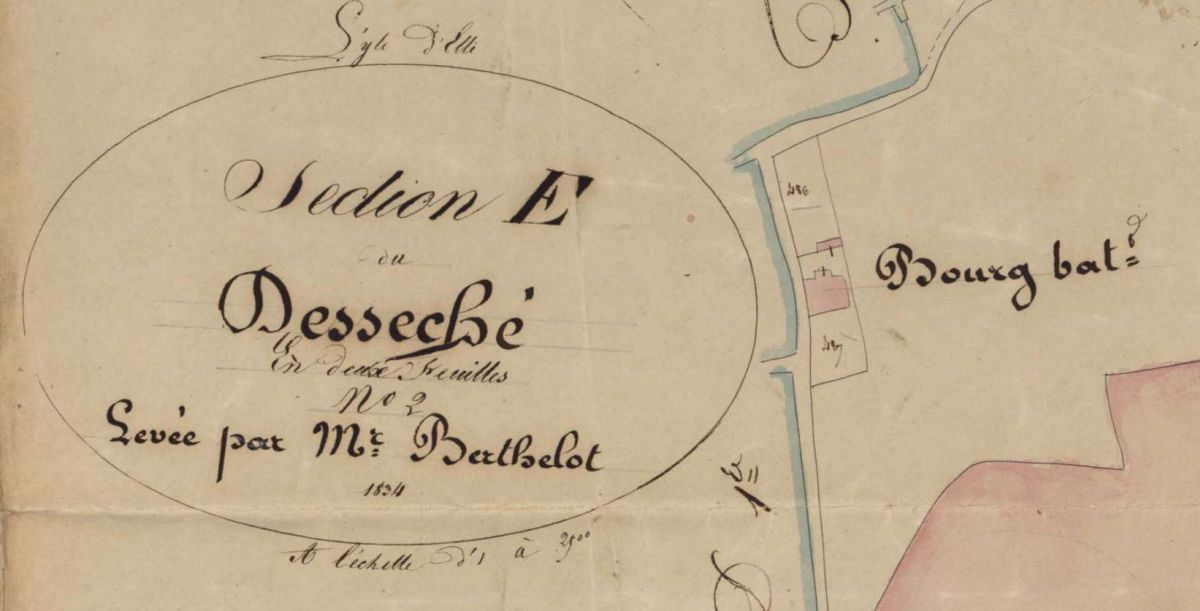 L'yle d'Elle
Section E
du
Desseché
En deux Feuilles
No 2
Levée par Mr. Berthelot
1834
A l'échelle d'1 à 2500
486
487
Bourg bat.d
1er